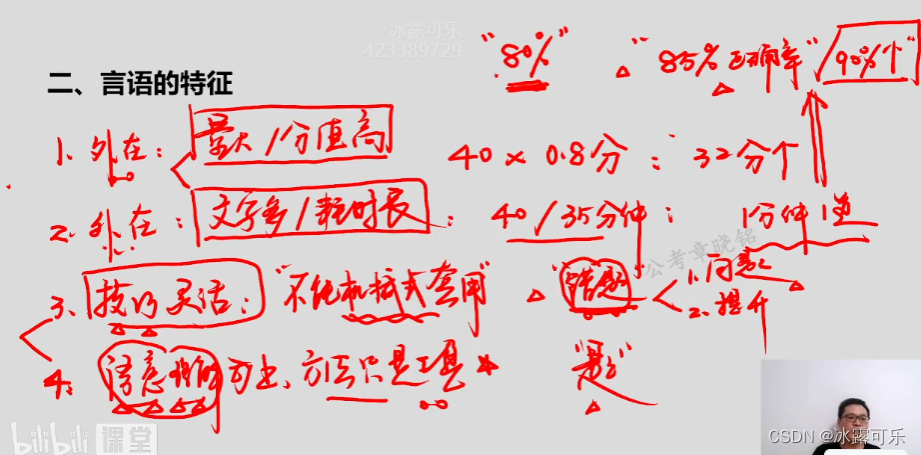 冰露可乐
423389729
"80%" "85%正确率"/90%个"
二、言语的特征
1、外在：量大/分值高
40×0.8分：32分个
2、外在：文字多/耗时长：40/35分钟：1分钟1道
公考章晓铭
3、技巧灵活："不能机械式套用" "错题" 1.问意
2.提升
4、语意 方法只是工具
bilibili课堂
CSDN @冰露可乐